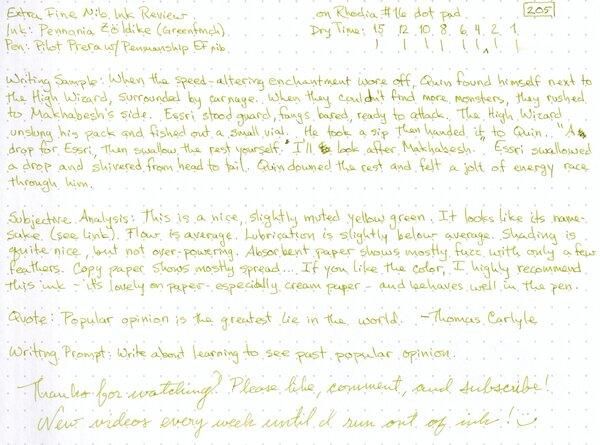 Extra Fine Nib Ink Review on Rhodia #16 dot pad. 205
Ink: Pennonia Zöldike (Greenfinch) Dry Time: 15 12 10 8 6 4 2 1
Pen: Pilot Prera w/ Penmanship EF nib
Writing Sample: When the speed-altering enchantment wore off, Quin found himself next to
the High Wizard, surrounded by carnage. When they couldn't find more monsters, they rushed
to Makhabesh's side. Essri stood guard, fangs bared, ready to attack. The High Wizard
unslung his pack and fished out a small vial. He took a sip then handed it to Quin. "A
drop for Essri, then swallow the rest yourself. I'll look after Makhabesh." Essri swallowed
a drop and shivered from head to tail. Quin downed the rest and felt a jolt of energy race
through him.
Subjective Analysis: This is a nice, slightly muted yellow green. It looks like its name-
sake. (see link). Flow is average. Lubrication is slightly below average. Shading is
quite nice, but not over-powering. Absorbent paper shows mostly fuzz with only a few
feathers. Copy paper shows mostly spread.... If you like the color, I highly recommend
this ink - it's lovely on paper - especially cream paper - and behaves well in the pen.
Quote: Popular opinion is the greatest lie in the world. -Thomas Carlyle
Writing Prompt: Write about learning to see past popular opinion.
Thanks for watching! Please like, comment, and subscribe!
New videos every week until I run out of ink!